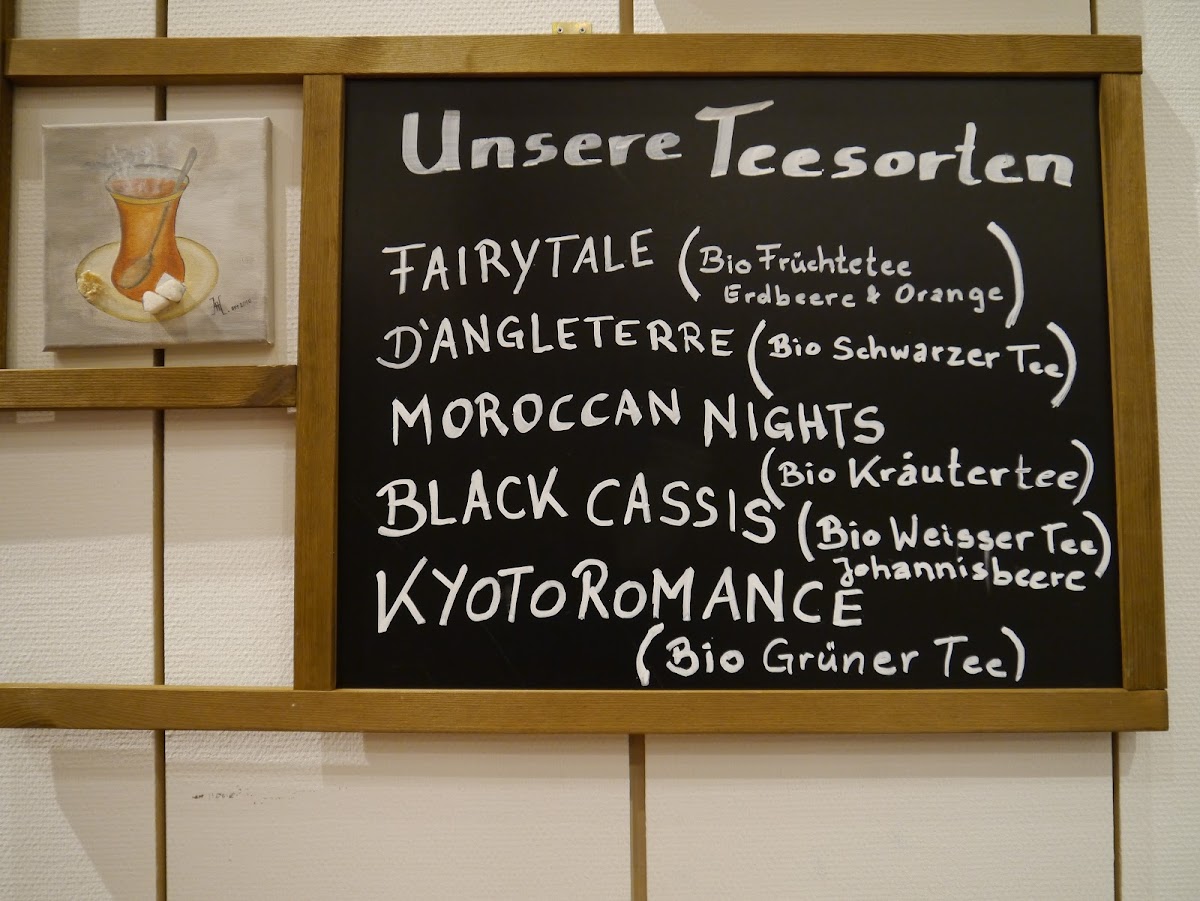 Unsere Teesorten
FAIRYTALE (Bio Früchtetee
Erdbeere & Orange)
D'ANGLETERRE (Bio Schwarzer Tee)
MOROCCAN NIGHTS
(Bio Kräutertee)
BLACK CASSIS (Bio Weisser Tee)
Johannisbeere
KYOTO ROMANCE
(Bio Grüner Tee)